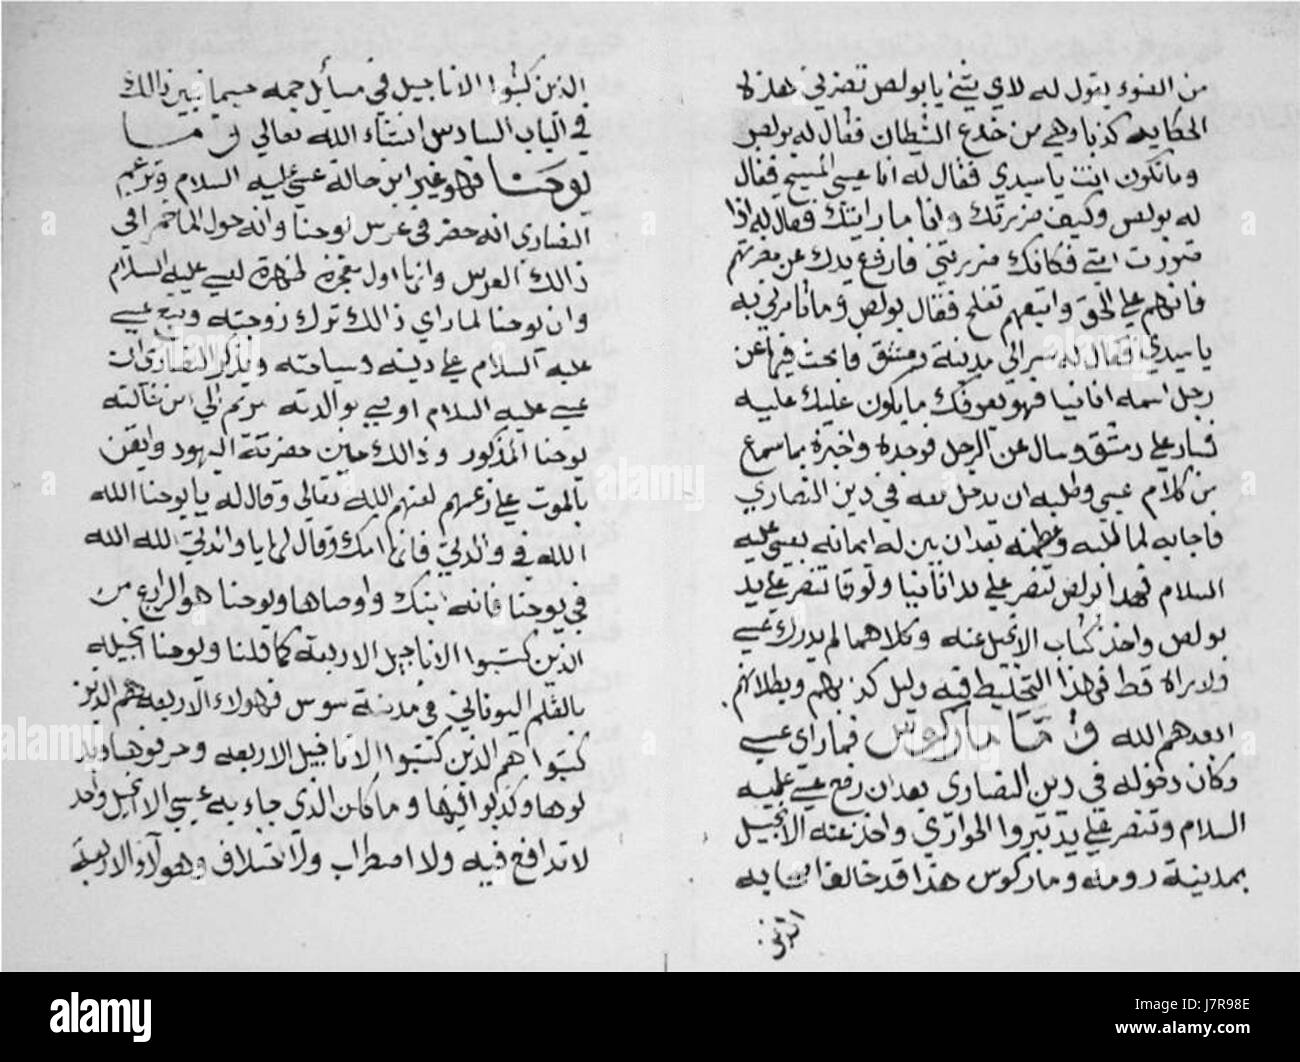 من الضوء يقول له لاي شئ يا بولص تضرني هذه
الحكايه كذبا وهي من خدع الشيطان فقال له بولص
ومن تكون انت يا سيدي فقال له انا عيسى المسيح فقال
له بولص وكيف ضررتك وانا ما رايتك فقال له اذا
ضررت امتي فكانك ضررتني فارفع يدك عن مضرتهم
فانهم على الحق واتبعهم تفلح فقال بولص وما تامرني به
يا سيدي فقال له سر الى مدينة دمشق فابحث فيها عن
رجل اسمه انانيا فهو يعرفك ما يكون عليك عليه
فسار على دمشق وسال عن الرجل فوجده واخبره بما سمع
من كلام عيسى وطلبه ان يدخل معه في دين النصاري
فاجابه لما طلبه وعظمه بعد ان بين له ايمانه بعيسى عليه
السلام فهذا بولص تنصر على يد انانيا ولوقا تنصر على يد
بولص واخذ كتاب الانجيل عنه وكلاهما لم يدرك عيسى
ولا يراه قط فهذا التخليط فيه دليل كذبهم وبطلانهم
ابعدهم الله وما ماركوس فما راي عيسى
وكان دخوله في دين النصاري بعد ان رفع عيسى عليه
السلام وتنصر على يد بتروا الحواري واخذ عنه الانجيل
بمدينة رومة وماركوس هذا قد خالف اصحابه
الذين
الذين كتبوا الاناجيل في مسائل جمه حسبما نبين ذالك
في الباب السادس انشاء الله تعالى وما
يوحنا فهو غير ابن خالة عيسى عليه السلام وتزعم
النصاري انه حضر في عرس يوحنا وانه حول الماء خمرا في
ذالك العرس وانها اول معجزة ظهرة لعيسى عليه السلام
وان يوحنا لما راي ذالك ترك زوجته وتبع عيسى
عليه السلام على دينه وسياحته ويذكر النصاري ان
عيسى عليه السلام اوصى بوالدته مريم الى ابن خالته
يوحنا المذكور وذالك حين حضرته اليهود وايقن
بالموت على زعمهم لعنهم الله تعالى وقال له يا يوحنا الله
الله في والدتي فانها امك وقال لها يا والدتي الله الله
في يوحنا فانه ابنك واوصاها ويوحنا هو الرابع من
الذين كتبوا الاناجيل الاربعة كما قلنا ويوحنا انجيله
بالقلم اليوناني في مدينة سوس فهولاء الاربعة هم الذين
كتبوا هم الذين كتبوا الاناجيل الاربعه وحرفوها وبد
لوها وكذبوا فيها وما كان الذي جاء به عيسى الا انجيل واحد
لا تدافع فيه ولا اضطراب ولا اختلاف وهولاء الاربعة
alamy
alamy
Image ID: J7R98E
www.alamy.com